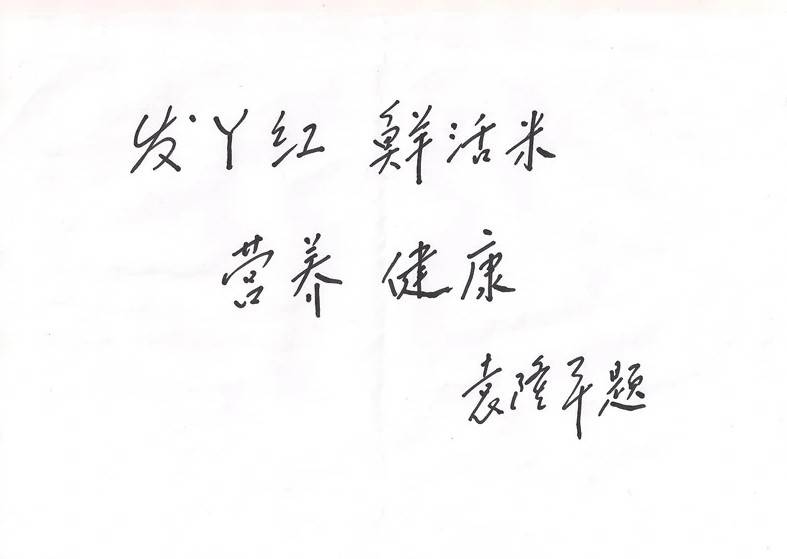 发丫红 鲜活米
营养 健康
袁隆平题